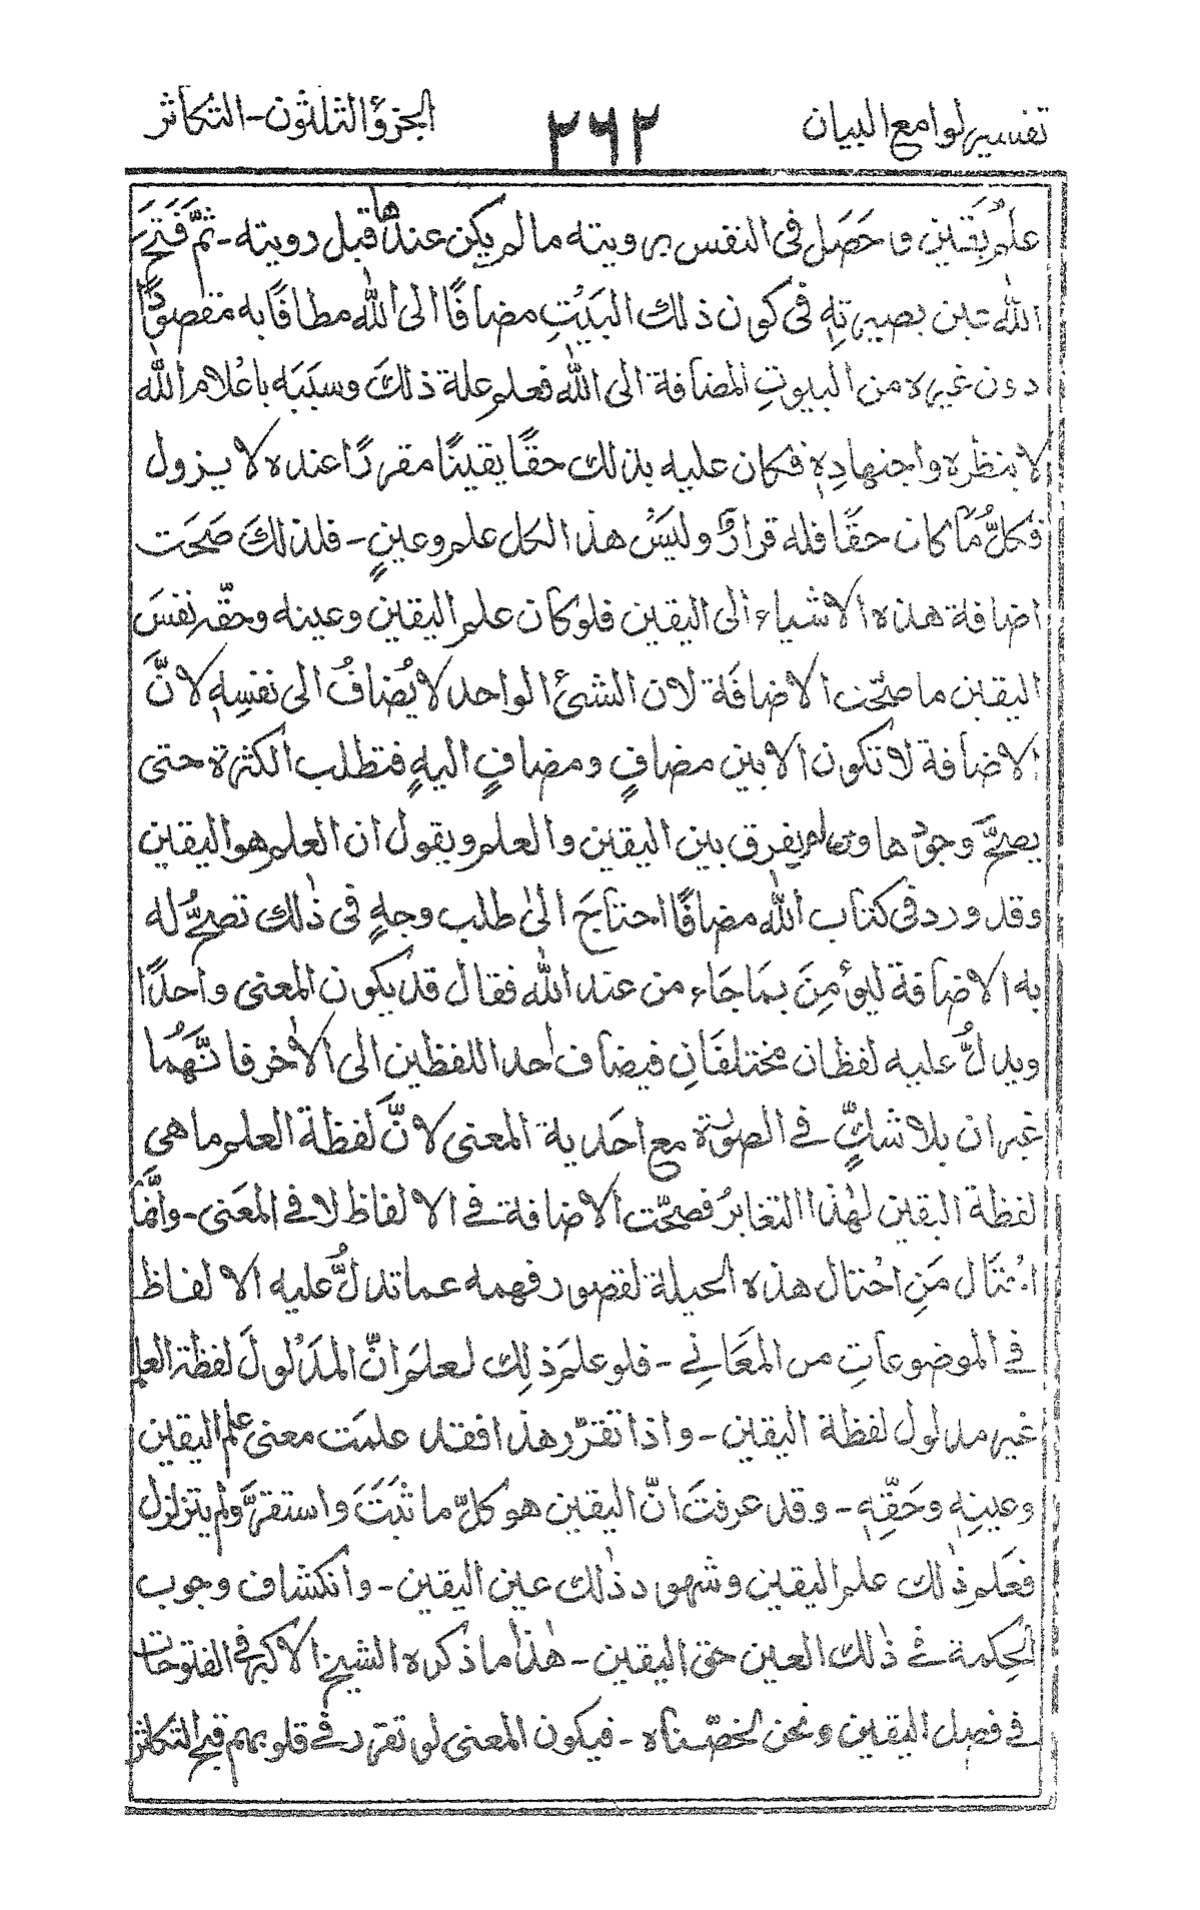 تفسير لوامع البيان ٣٦٢ الجزؤ الثلثون - التكاثر
علمُ يَقين ما حَصَل فى النفس برويته ما لم يكن عندها قبل رويته - ثمَّ فَتَحَ
الله عين بصيرتِهٖ فى كون ذلك البَيْتِ مضافًا الى الله مطافًا به مقصودًا
دون غيره من البيوتِ المضافة الى الله فعلم علة ذلكَ وسبَبَه باعْلام الله
لا بنظره واجتهادِهٖ فكان عليه بذلك حقًا يقينًا مقررًا عنده لا يزول
فكلُّ مَا كان حقًا فله قرارٌ وليَسْ هذا لكل علم وعينٍ - فلذلكَ صَحَت
اضافة هذه الاشياء الى اليقين فلو كان علم اليقين وعينه وحقّه نفسَ
اليقين ما صحّت الاضافَة لان الشئ الواحد لا يُضافُ الى نفسِهٖ لانَّ
الاضافة لا تكون الا بين مضافٍ ومضافٍ اليهٍ فتطلب الكثرة حتى
يصحَّ وجودها ومن لم يفرق بين اليقين والعلم ويقول ان العلم هو اليقين
وقد ورد فى كتاب الله مضافًا احتاجَ الىٰ طلب وجهٍ فى ذٰلك تصحُّ له
به الاضافة ليؤمِنَ بمَا جَاء من عند الله فقال قد يكون المعنى واحدًا
ويدلُّ عليه لفظان مختلفَانِ فيضاف احد اللفظين الى الاٰخر فانَّهُمَا
غيران بلا شكٍّ في الصورة مع احَدية المعنى لانَّ لفظة العلم ما هى
لفظة اليقين لهٰذا التغايرُ فصحّت الاضافة في الالفاظ لا في المعَنى - وانَّما
احْتَال مَنِ احْتال هذه الحيلة لقصور فهمه عما تدلُّ عليه الالفاظ
في الموضوعاتِ من المعَانِي - فلو علمَ ذلِك لعلمَ انّ المدَلُولَ لفظة العلم
غير مدلول لفظة اليقين - واذا تقرّر هذا فقد علمَت معنى علم اليقين
وعينِهٖ وحَقّهٖ - وقد عرفتَ انّ اليقين هو كلّ ما ثبَتَ واستقرَّ ولم يتزلزل
فعَلم ذٰلك علم اليقين وشهود ذٰلك عين اليقين - وانكشاف وجوب
الحِكمة في ذٰلك العين حق اليقين - هٰذا ما ذكره الشيخ الاكبر فى الفتوحات
في فصل اليقين ونحن لخصّناه - فيكون المعنى لو تقرّر في قلوبهم قبح التكاثر